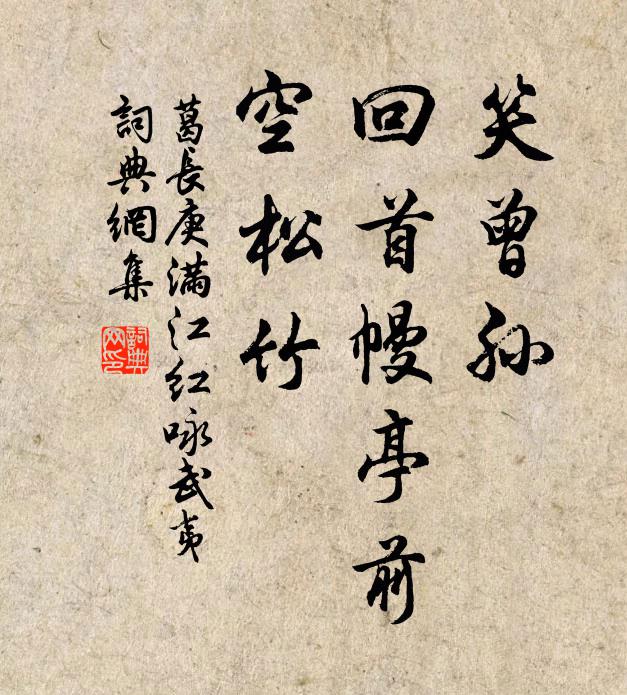 笑曾孙
回首幔亭前
空松竹
葛長庚满江红咏武夷
詞典網集
詞典網印